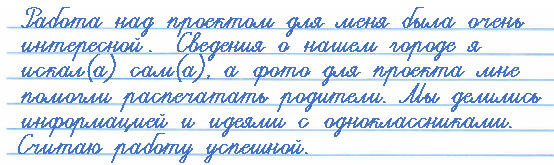 Работа над проектом для меня была очень
интересной. Сведения о нашем городе я
искал(а) сам(а), а фото для проекта мне
помогли распечатать родители. Мы делились
информацией и идеями с одноклассниками.
Считаю работу успешной.